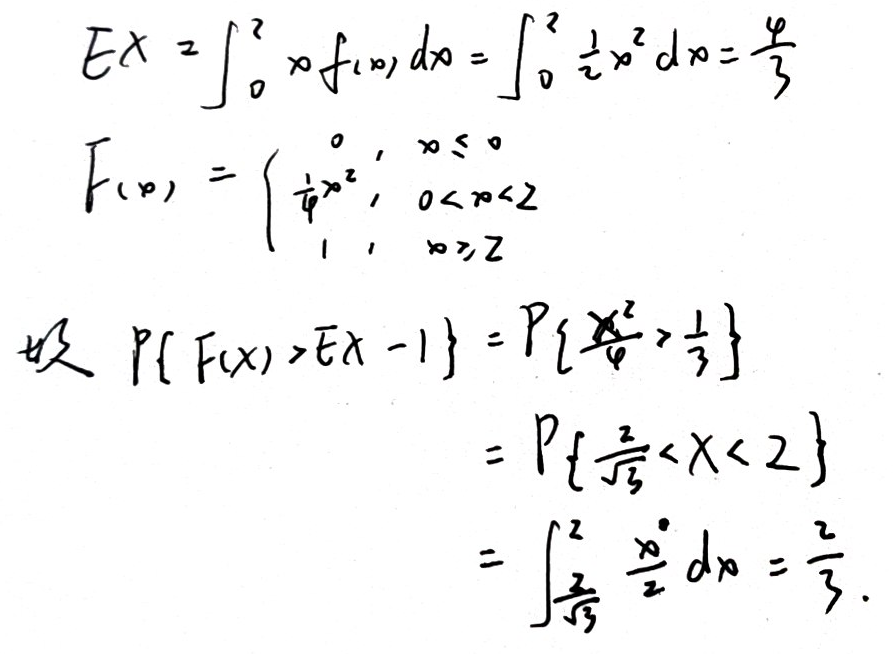 EX = ∫₀² x f(x) dx = ∫₀² ½x² dx = 4/3
F(x) = { 0, x ≤ 0
¼x², 0 < x < 2
1, x ≥ 2
故 P{F(X) > EX - 1} = P{X²/4 > 1/3}
= P{2/√3 < X < 2}
= ∫_{2/√3}^{2} x/2 dx = 2/3.